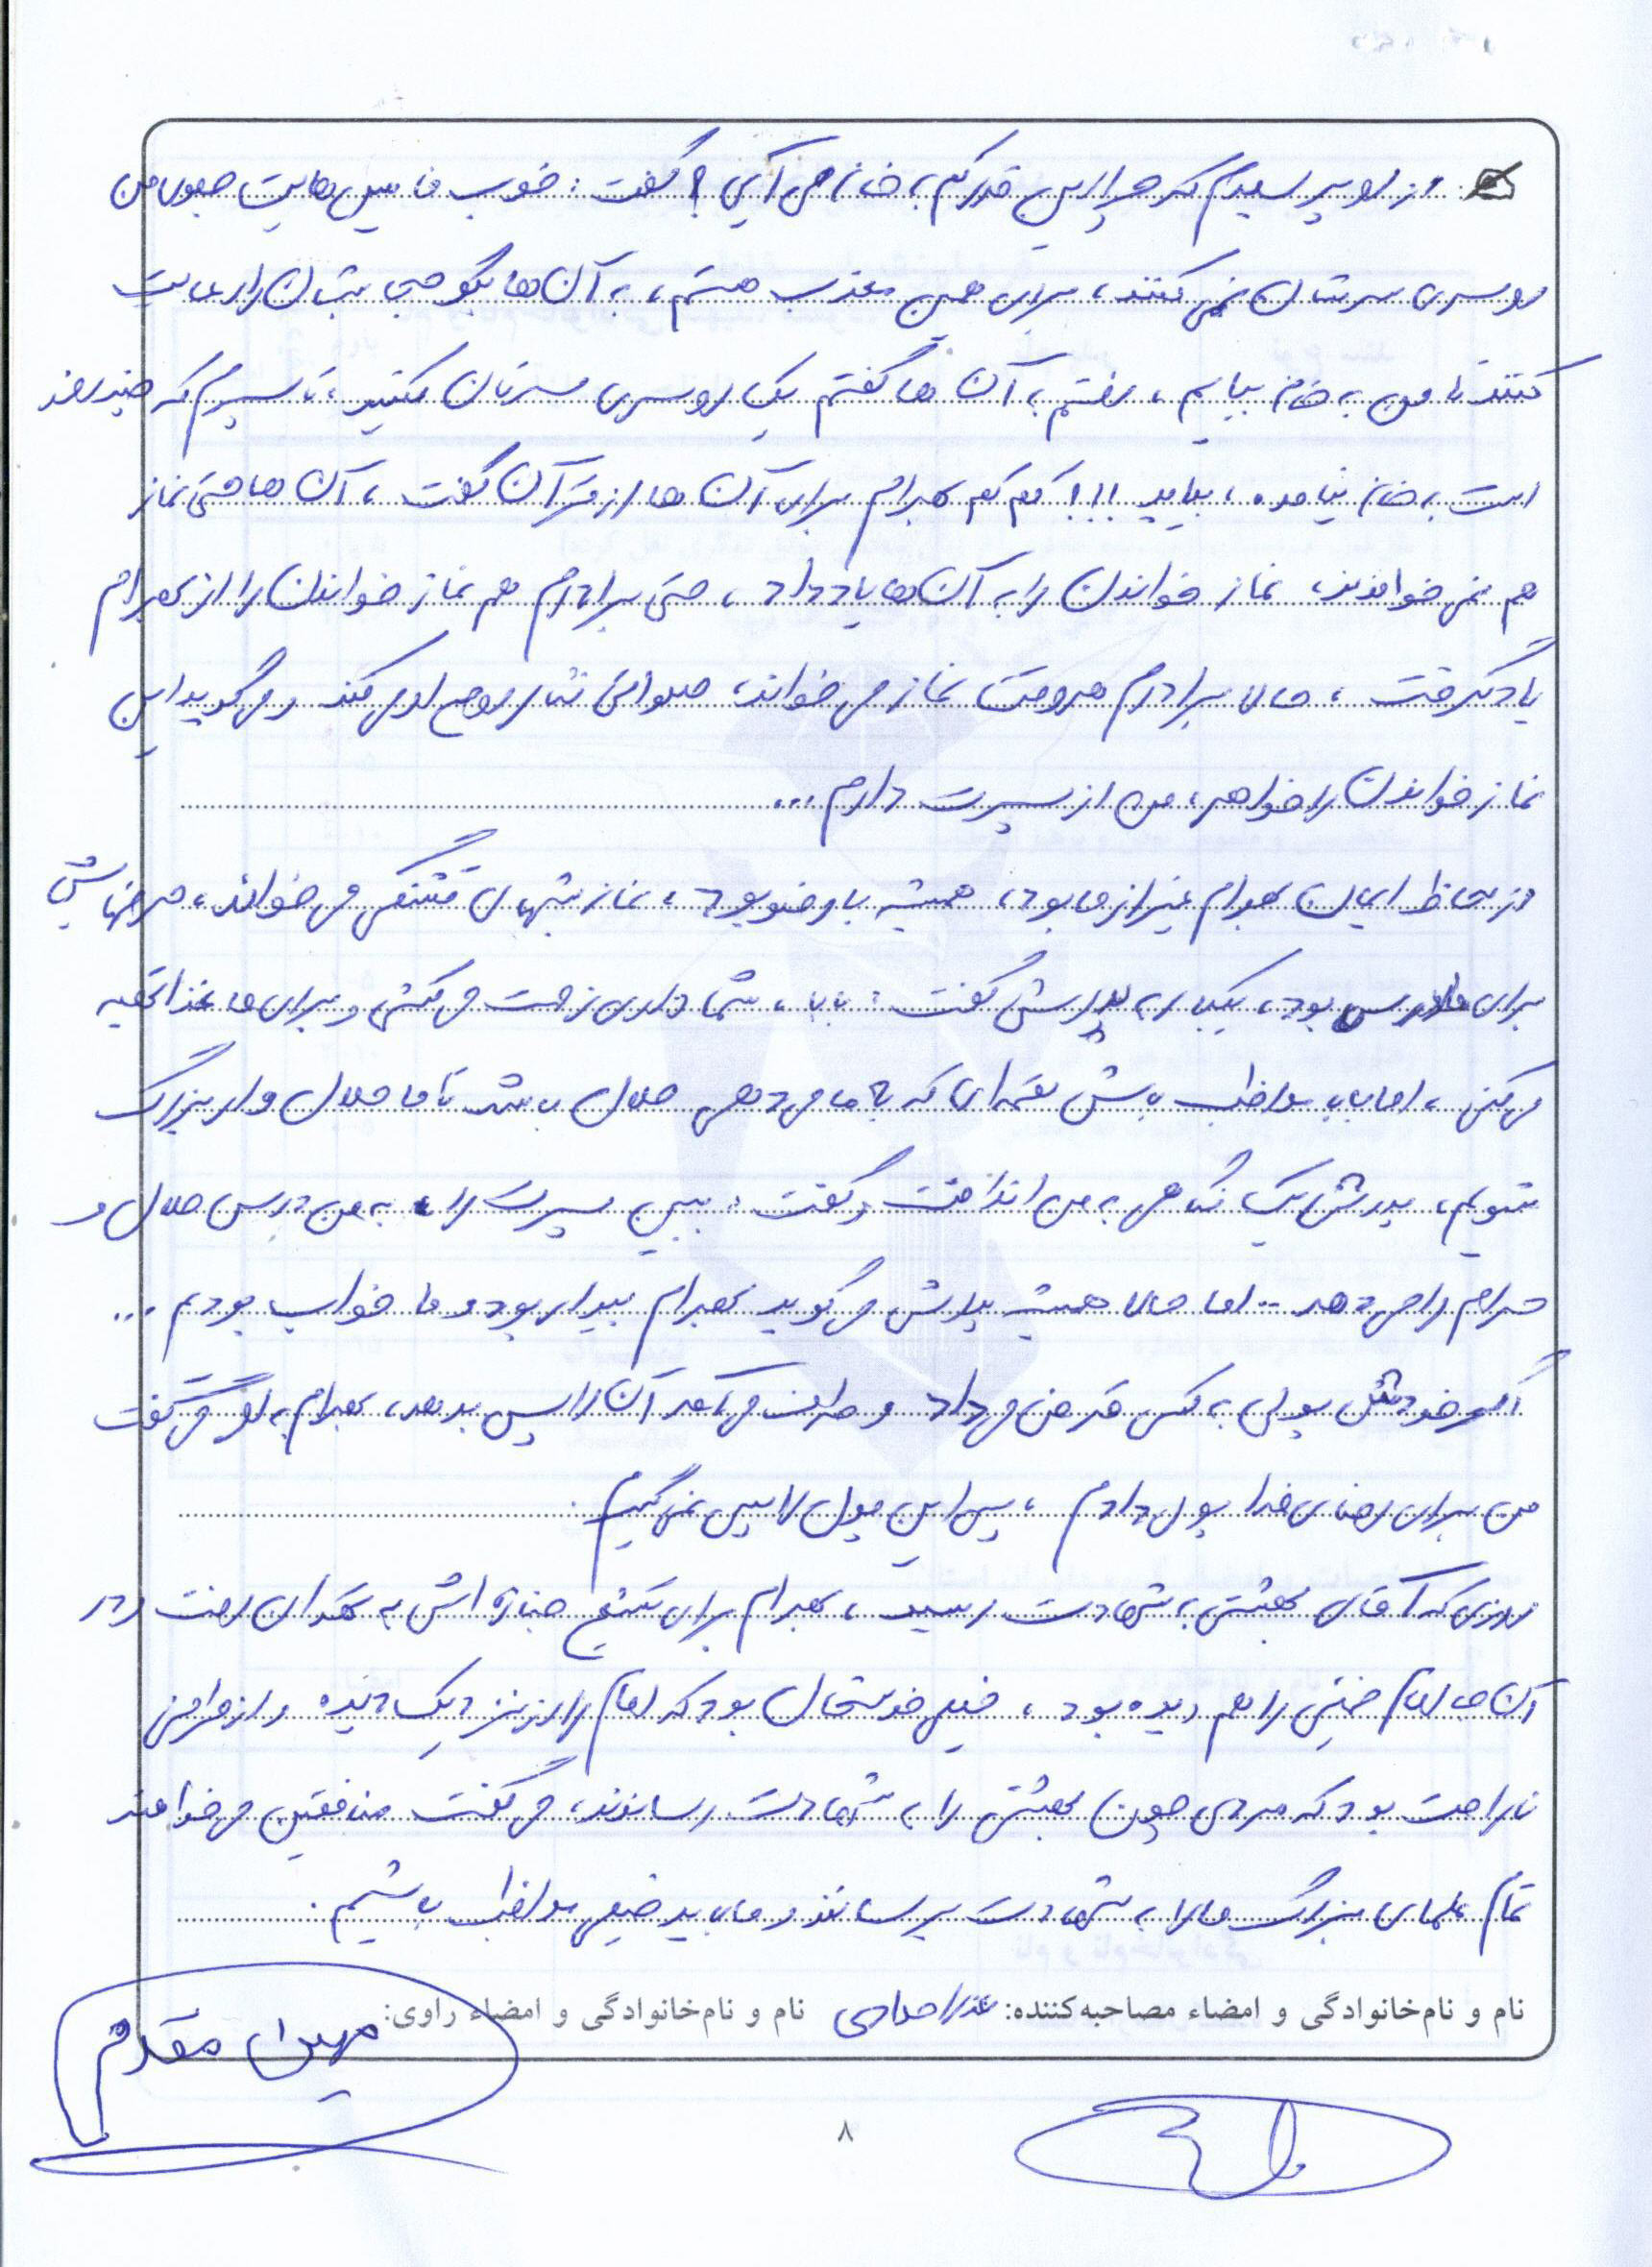 از او پرسیدم که چرا این قدر کم به خانه می آیی؟ گفت: خوب فامیل هایت جلوی من
روسری سرشان نمی کنند، برای همین معذب هستم، به آن ها بگو حجابشان را رعایت
کنند تا من به خانه بیایم، رفتم به آن ها گفتم یک روسری سرتان بکنید، تا پسرم که چند روز
است به خانه نیامده، بیاید!!! کم کم بهرام برای آن ها از قرآن گفت، آن ها حتی نماز
هم نمی خواندند، نماز خواندن را به آن ها یاد داد، حتی برادرم هم نماز خواندن را از بهرام
یاد گرفت، حالا برادرم هر وقت نماز می خواند، صلواتی نثار روح او می کند و می گوید این
نماز خواندن را خواهر، من از پسرت دارم...
از لحاظ ایمان بهرام غیر از ما بود، همیشه با وضو بود، نماز شبهای قشنگی می خواند، حرفهایش
برای ما درس بود، یکبار به پدرش گفت: بابا، شما داری زحمت می کشی و برای ما غذا تهیه
می کنی، اما بابا مواظب باش لقمه ای که به ما می دهی حلال باشد تا ما حلال وار بزرگ
شویم، پدرش یک نگاهی به من انداخت و گفت: ببین پسرت را، به من درس حلال و
حرام را می دهد.. اما حالا همیشه پدرش می گوید بهرام بیدار بود و ما خواب بودیم...
اگر خودش پولی به کسی قرض می داد و طرف می آمد آن را پس بدهد، بهرام به او می گفت
من برای رضای خدا پول دادم، پس این پول را پس نمی گیرم.
روزی که آقای بهشتی به شهادت رسید، بهرام برای تشیع جنازه اش به تهران رفت و در
آن جا امام خمینی را هم دیده بود، خیلی خوشحال بود که امام را از نزدیک دیده و از طرفی
ناراحت بود که مردی چون بهشتی را به شهادت رساندند، می گفت منافقین می خواهند
تمام علمای بزرگ ما را به شهادت برسانند و ما باید خیلی مواظب باشیم.
نام و نام خانوادگی و امضاء مصاحبه کننده: عذرا صلاحی نام و نام خانوادگی و امضاء راوی:
مهین مقدم
۸